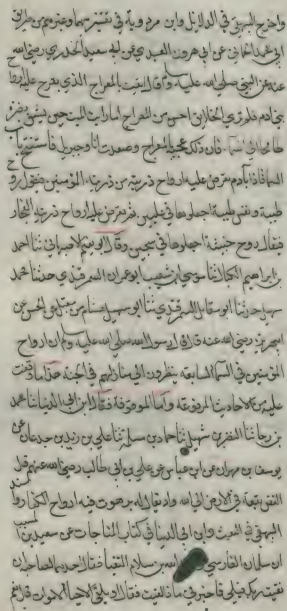 واخرج البيهقي في الدلايل وابن مردويه في تفسيرهما وغيرهم من طريق
ابي محمد الحماني عن ابي هرون العبدي عن ابي سعيد الخدري رضي الله
عنه عن النبي صلى الله عليه وسلم قال اتيت بالمعراج الذي تعرج عليه ارواح
بني ادم فلم تري الخلايق احسن من المعراج اما رايت الميت حين يشق بصره
طامحا الى السما فان ذلك عجبه بالمعراج وصعدت انا وجبريل فاستفتح باب
السما فاذا بآدم تعرض عليه ارواح ذريته من ذريته المؤمنين فيقول روح
طيبة ونفس طيبة اجعلوها في عليين ثم تعرض عليه ارواح ذريته الفجار
فيقال روح خبيثة اجعلوها في سجين وقال ابو نعيم الاصفهاني ثنا احمد
بن ابراهيم الكيال ثنا موسى بن شعيب ابو عمران السمرقندي حدثنا محمد
بن سهيل حدثنا ابو مقاتل السمرقندي ثنا ابو سهل هشام بن مصك عن الحسن عن
ابي هريرة رضي الله عنه قال قال رسول الله صلى الله عليه وسلم ان ارواح
المؤمنين في السما السابعة ينظرون الى منازلهم في الجنة هذا ما وقفت
عليه من الاحاديث المرفوعة واما الموقوفة فقال ابن ابي الدنيا ثنا محمد
بن رجا ثنا النضر بن شميل ثنا حماد بن سلمة ثنا علي بن زيد بن جدعان عن
يوسف بن مهران عن ابن عباس عن علي بن ابي طالب رضي الله عنهم قال
ابغض بقعة في الارض الى الله واد يقال له برهوت فيه ارواح الكفار واسند
البيهقي في البعث وابن ابي الدنيا في كتاب المنامات عن سعيد بن المسيب
ان سلمان الفارسي وعبد الله بن سلام التقيا فقال احدهما لصاحبه ان
لقيت ربك قبلي فاخبرني ماذا لقيت فقال او يلقى الاحيا الاموات قال نعم